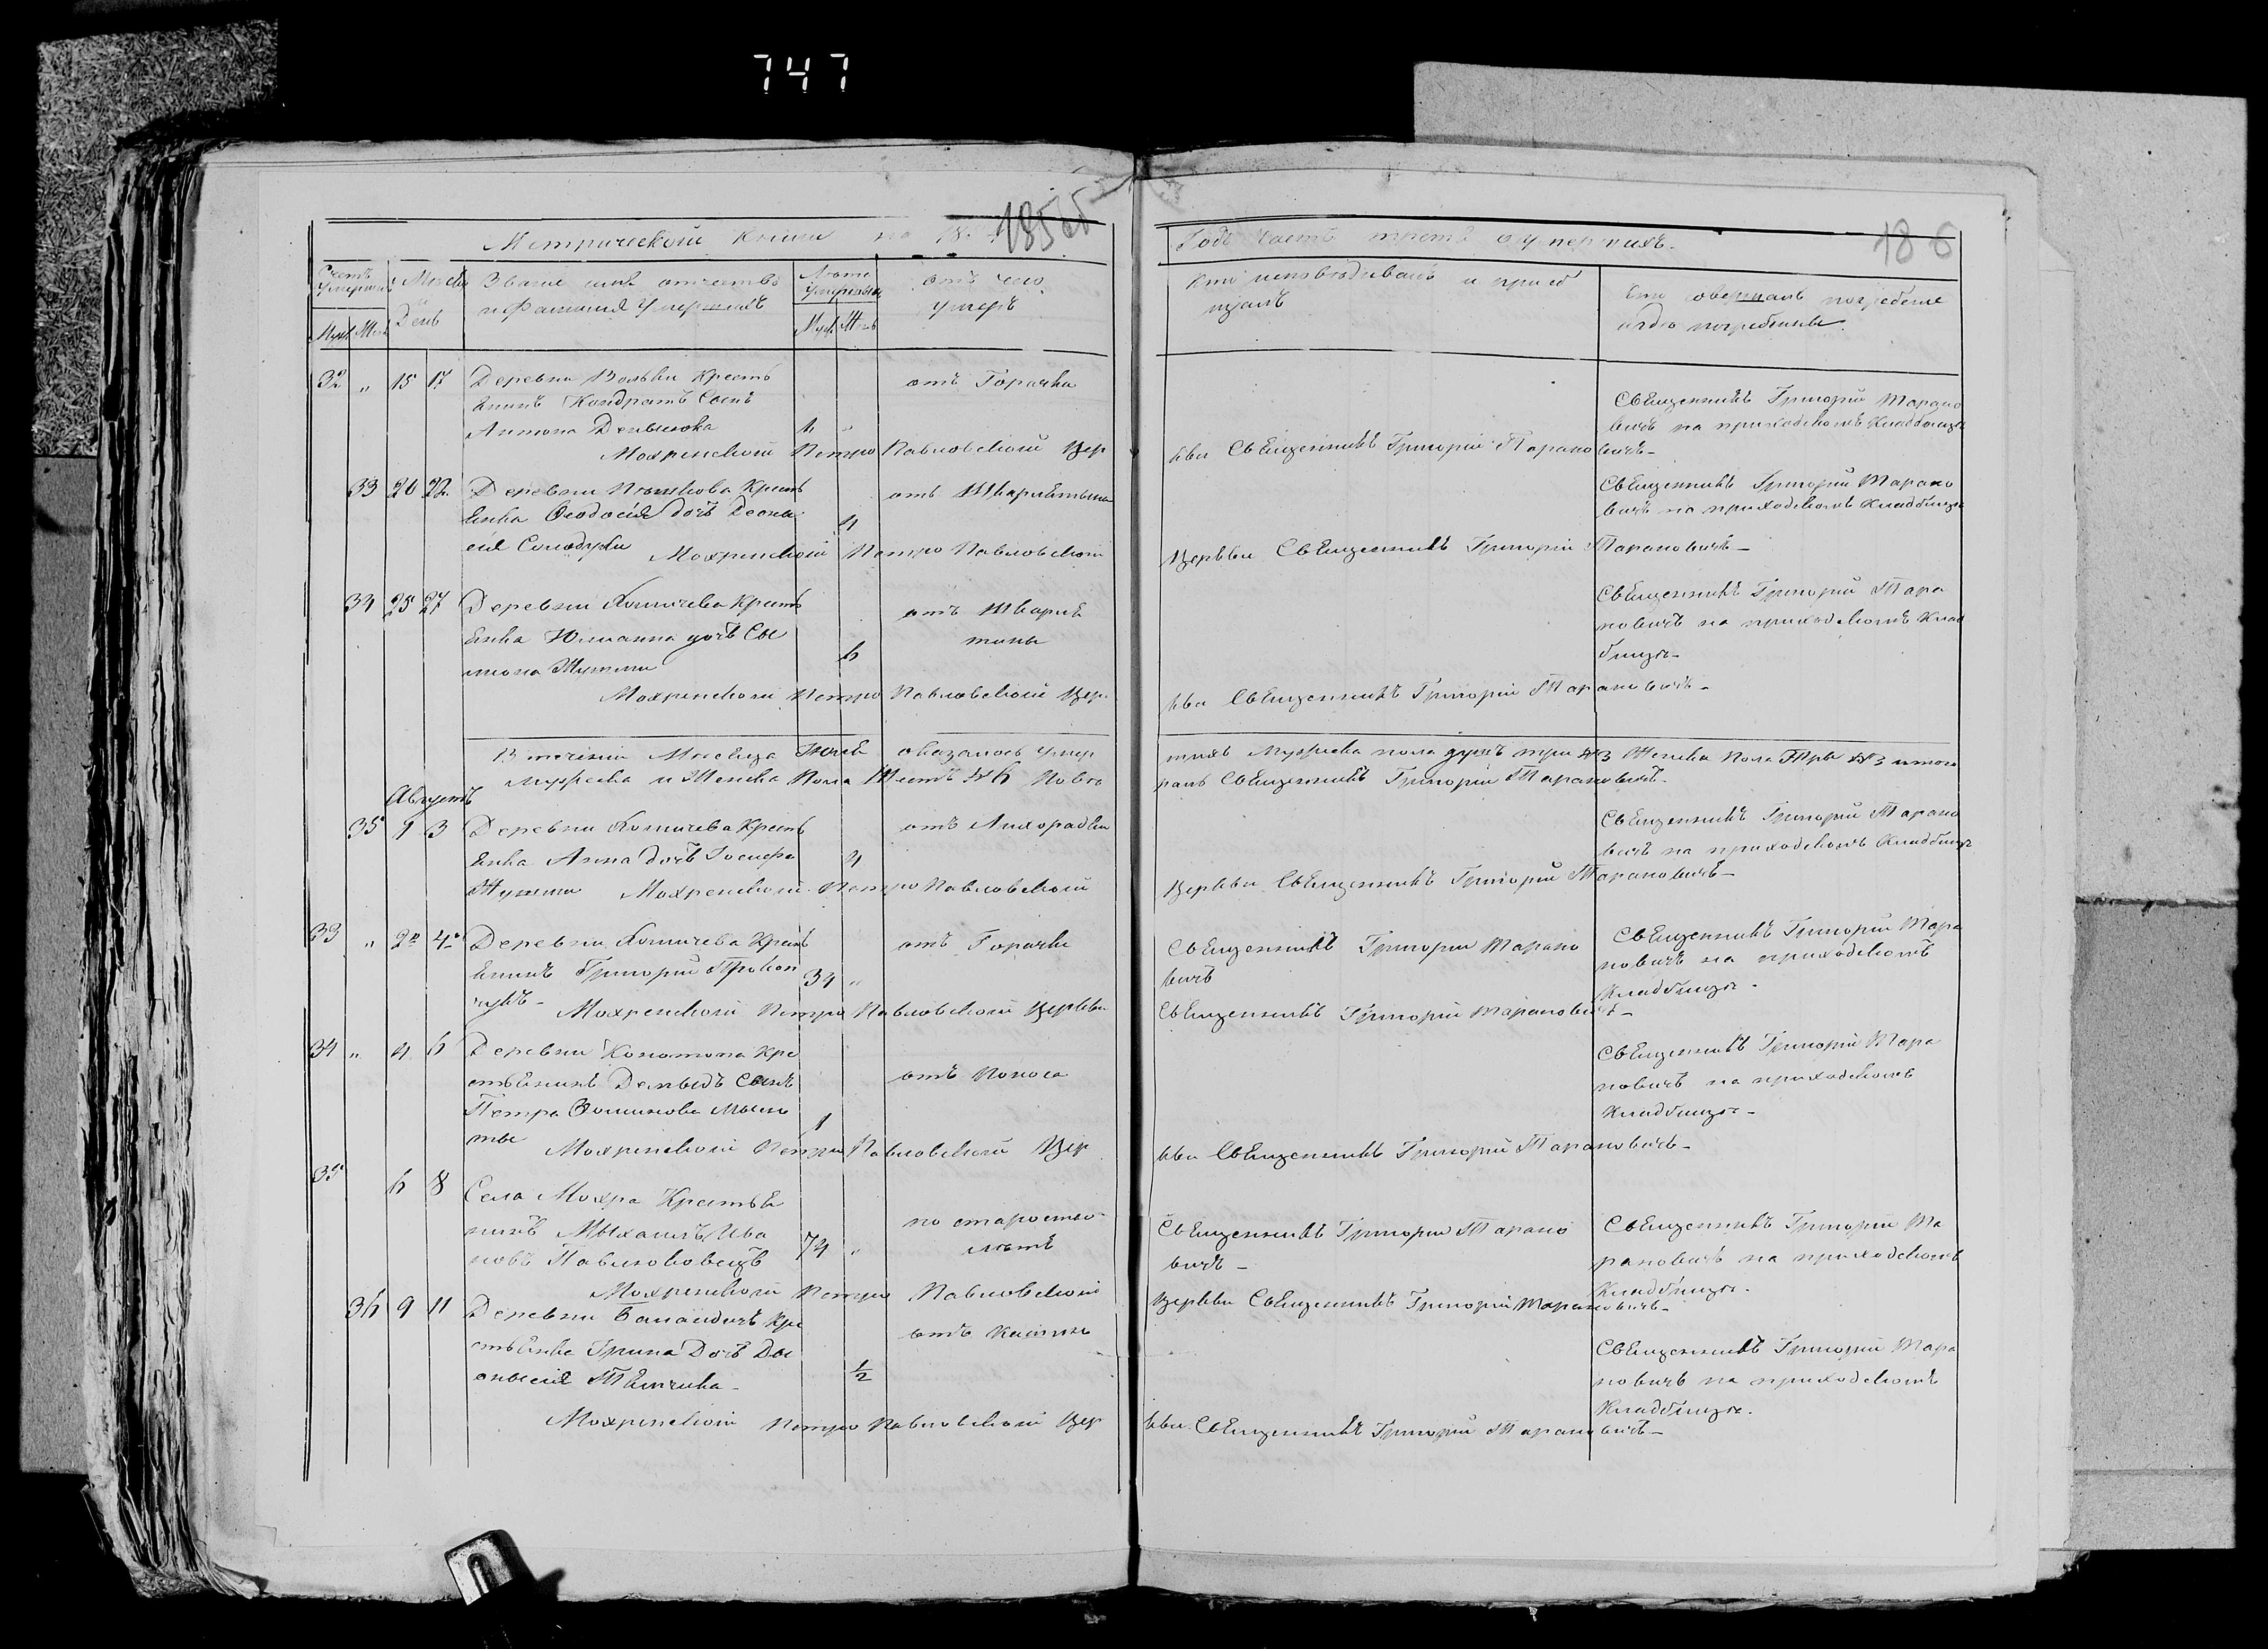 747
185об
186
Метрической Книги на 18
Годъ Часть третя о умершихъ.
Счетъ Умершихъ
Муж. Жен.
Мѣсяцъ
День
Званіе имя отчество
и Фамилія Умершихъ
Лета Умершаго
Муж Жен
отъ чего
умеръ
Кто исповѣдывалъ и приоб
щалъ
Кто совершалъ погребеніе
и гдѣ погребены
32 „ 15 17 Деревни Вольки Кресть
янинъ Кондратъ Сынъ
Антона Демьянова 1 „
отъ Горячки
Священникъ Григорій Тарано
вичъ на приходскомъ Кладбищѣ
Мохренской Петро Павловской Цер
кви Священникъ Григорій Тарановичъ
33 20 22 Деревни Крестъ
янка Ѳеодосія дочъ Деони
сія 4
отъ Шкарлятины
Священникъ Григорій Тарано
вичъ на приходскомъ Кладбищѣ
Мохренской Петро Павловской
Церкви Священникъ Григорій Тарановичъ
34 25 27 Деревни Хомичева Крестъ
янка Юлианна дочъ Си
миона 6
отъ Шкарля
тины
Священникъ Григорій Тара
новичъ на приходскомъ Клад
бищѣ
Мохренской Петро Павловской Цер
кви Священникъ Григорій Тарановичъ
В течении Мисяца Июля оказалось Умер
шихъ Мужеска пола душъ три №3 Женска Пола Три №3 итого
Мужеска и Женска Пола Шесть №6
Священникъ Григорій Тарановичъ
Августъ
35 1 3 Деревни Хомичева Крестъ
янка Анна дочъ Иосифа 4
отъ Лихорадки
Священникъ Григорій Тарано
вичъ на приходскомъ Кладбищѣ
Мохренской Петро Павловской
Церкви Священникъ Григорій Тарановичъ
33 „ 2 4 Деревни Хомичева Кресть
янинъ Григорій Прокоп
чукъ 34 „
отъ Горячки
Священникъ Григорій Тарано
вичъ
Священникъ Григорій Тара
новичъ на приходскомъ
Кладбищѣ
Мохренской Петро Павловской Церкви
Священникъ Григорій Тарановичъ
34 „ 4 6 Деревни Конотопа Кре
стьянинъ Демыдъ Сынъ
Петра 1
отъ Поноса
Священникъ Григорій Тара
новичъ на приходскомъ
Кладбищѣ
Мохренской Петро Павловской Цер
кви Священникъ Григорій Тарановичъ
35 6 8 Села Мохра Крестья
нинъ Мыхаилъ Ива
новъ 74 „
по старости
лѣтъ
Священникъ Григорій Тарано
вичъ
Священникъ Григорій Та
рановичъ на приходскомъ
Кладбищѣ
Мохренской Петро Павловской
Церкви Священникъ Григорій Тарановичъ
36 9 11 Деревни Кре
стьянка Ирина Дочъ Ди
онысія 1/2
отъ Кашлю
Священникъ Григорій Тара
новичъ на приходскомъ
Кладбищѣ
Мохренской Петро Павловской Цер
кви Священникъ Григорій Тарановичъ